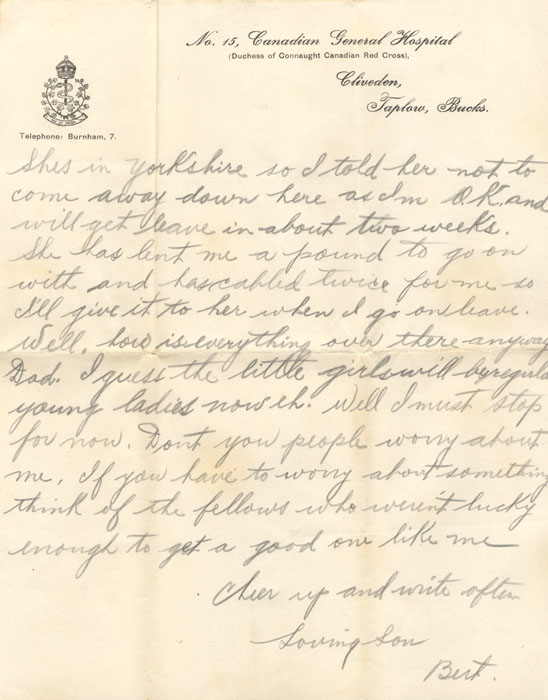 No. 15, Canadian General Hospital
(Duchess of Connaught Canadian Red Cross),
Cliveden,
Taplow, Bucks.
Telephone: Burnham, 7.
Shes in Yorkshire so I told her not to
come away down here as Im O.K. and
will get leave in about two weeks.
She has lent me a pound to go on
with and has cabled twice for me so
I'll give it to her when I go on leave.
Well, how is everything over there anyway
Dad. I guess the little girls will be regular
young ladies now eh. Well I must stop
for now. Dont you people worry about
me. If you have to worry about something
think of the fellows who weren't lucky
enough to get a good one like me
Cheer up and write often
Loving Son
Bert.